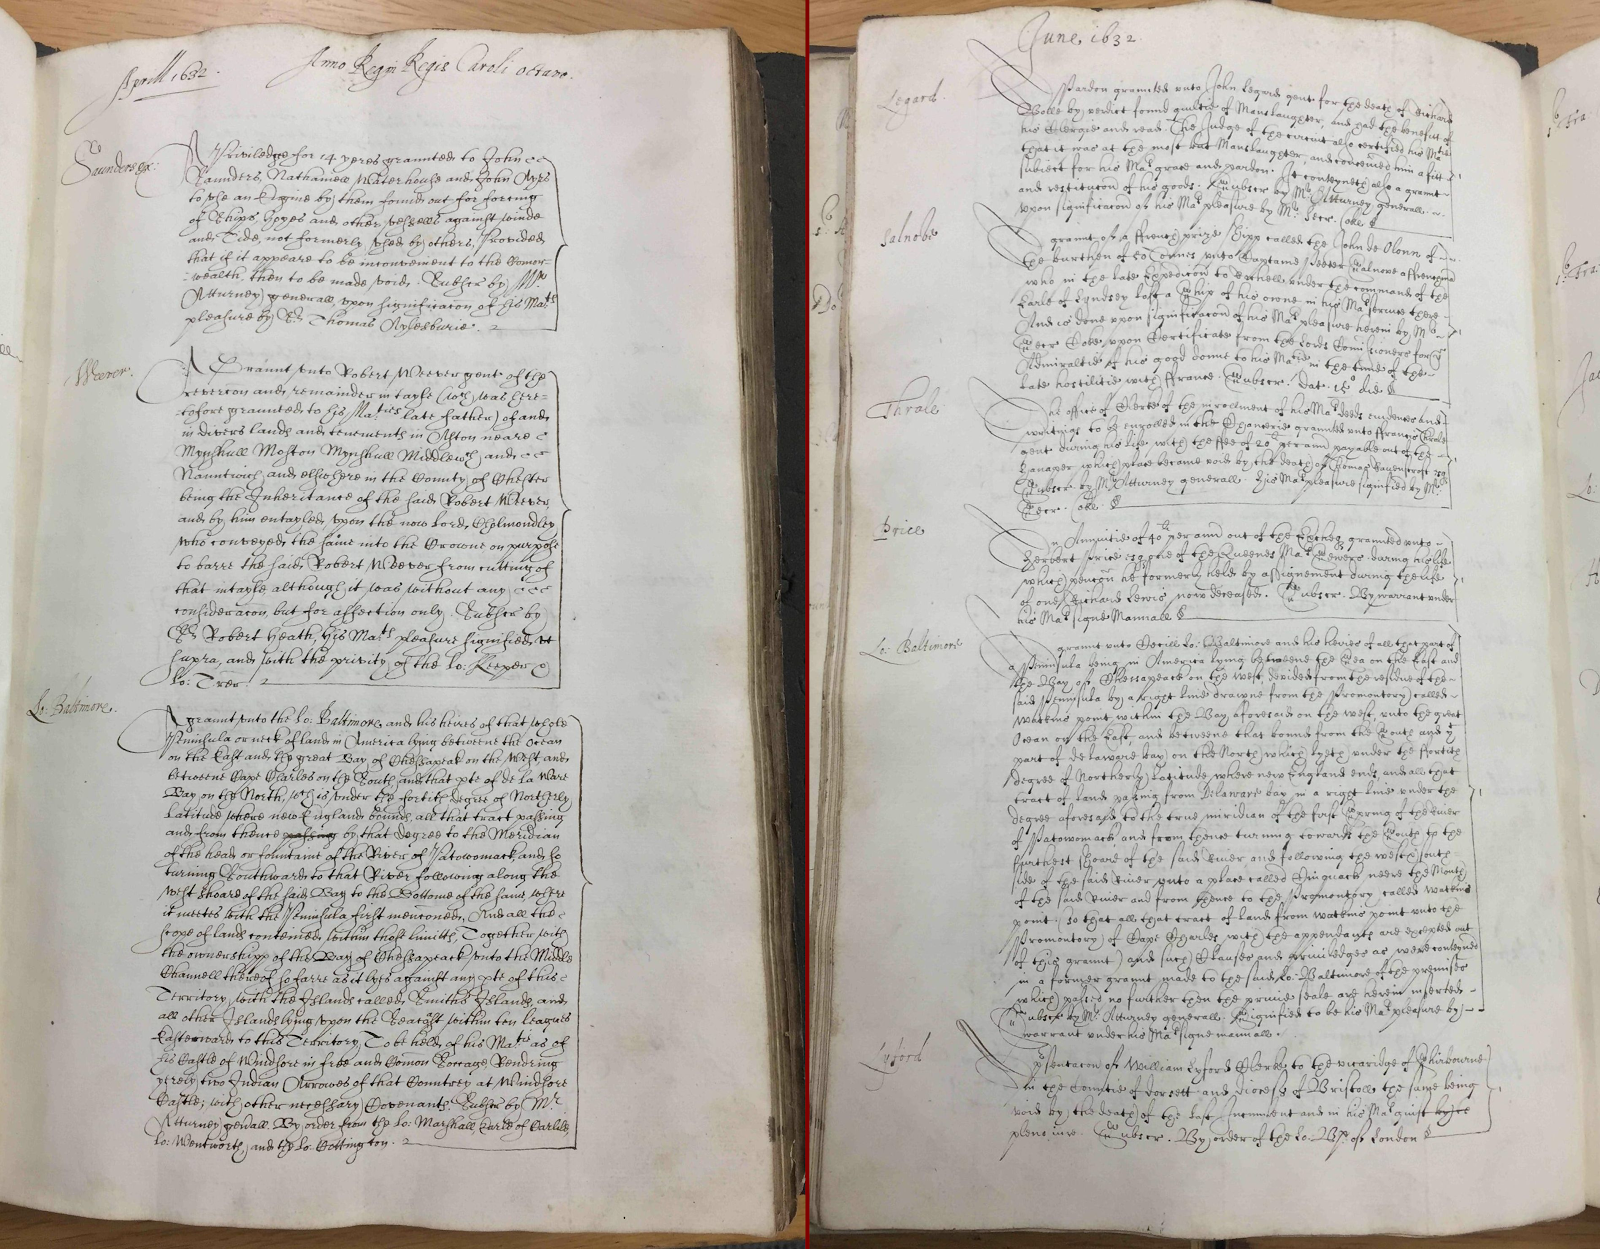 Aprill 1632. Anno Regni Regis Caroli octavo.
Saunders &c:
A Priviledge for 14 yeres graunted to John
Saunders, Nathaniell Waterhouse and John Ayres
to use an Engine by them found out for forcing
of Ships, Hoyes and other vessells against winde
and Tide, not formerly used by others, Provided
that if it appeare to be inconvenient to the Comon-
wealth, then to be made void. Subscr by Mr
Atturney generall upon significacon of his Mats
pleasure by Sr Thomas Aylesburie.
Weever.
A Graunt unto Robert Weever gent of the
revercon and remainder in tayle (wch was here-
tofore graunted to his Maties late father) of and
in divers lands and tenements in Aston neare
Mynshull Moston Mynshull Middlewch and
Nauntwich and elswhere in the County of Chester
being the Inheritance of the said Robert Weever,
and by him entayled upon the now Lord Cholmondley
who conveyed the same into the Crowne on purpose
to barre the said Robert Weever from cutting of
that intayle although it was without any
consideracon but for affection only. Subscr by
Sr Robert Heath, his Mats pleasure signified, ut
supra, and with the privity of the Lo: Keeper &
Lo: Trer.
Lo: Baltimore.
A graunt unto the Lo: Baltimore and his heires of that whole
Peninsula or neck of land in America lying betweene the Ocean
on the East and the great Bay of Chessapeak on the West and
betweene Cape Charles on the South and that pte of de la Ware
Bay on the North, wch is under the fortith degree of Northerly
Latitude where new England bounds, all that tract passing
and from thence passing by that degree to the Meridian
of the head or fountaine of the River of Patowomack, and so
turning Southward to that River following along the
West shoare of the said Bay to the Bottome of the same, where
it meetes with the Peninsula first menconed, And all the
scope of land conteined within those limitts, Together with
the ownershipp of the Bay of Chessapeack unto the Middle
Channell thereof so farre as it lyes against any pte of this
Territory, with the Islands called Smiths Islands, and
all other Islands lying upon the Seacoast within ten leagues
Eastward to this Territory, To be held of his Matie as of
his Castle of Windsore in free and Comon Soccage, Rendring
yerely two Indian Arrowes of that Countrey at Windsore
Castle; with other necessary Covenants. Subscr by Mr
Atturney genall. By order from the Lo: Marshall, Earle of Carlile,
Lo: Wentworth, and the Lo: Cottington.
June, 1632.
Legard.
A Pardon graunted unto John Legard gent for the death of Richard
Wolfe by verdict found guiltie of Manslaughter, and had the benefitt of
his Clergie and read. The Judge of the circuit also certified his Matie
that it was at the most but Manslaughter, and conceived him a fitt
subiect for his Mats grace and pardon. It conteyneth also a graunt
and restitucon of his goods. Subscr by Mr Atturney generall
upon significacon of his Mats pleasure by Mr Secr. Coke
Salnove
A graunt of a ffrench prize shipp called the John de Olonn of
the burthen of 60 Tonnes unto Captaine Peeter Salnove a ffrenchman
who in the late Expedicon to Rochell under the command of the
Earle of Lyndsey lost a Ship of his owne in his Mats service there
And is done upon significacon of his Mats pleasure herein by Mr
Secr Coke, upon Certificate from the Lords Comissioners for ye
Admiraltie of his good donne to his Matie in the time of the
late hostilitie with ffrance. Subscr. Dat. die
Thrale
The office of Clerke of the inrollment of his Mats deeds evidences and
writings to be enrolled in the Exchequer graunted unto ffrancis Thrale
gent during his life with the ffee of 20l per ann payable out of the
Hanaper, which place became void by the death of Thomas Ravenscroft esq
Subscr by Mr Atturney generall. His Mats pleasure signified by Mr
Secr. Coke
Price
An Annuitie of 40l per ann out of the Excheqr graunted unto
Herbert Price esq one of the Queenes Mats Sewers during his life
which pencon he formerly held by assignement during the life
of one Richard Lewis now deceased. Subscr. By warrant under
his Mats signe Manuall
Lo: Baltimore
A graunt unto Cecill Lo: Baltimore and his heires of all that part of
a Peninsula being in America lying betweene the Sea on the East and
the Bay of Chessapeack on the West, devided from the residue of the
said Peninsula by a right line drawne from the Promontory called
Watkins point within the Bay aforesaid on the west, unto the great
Ocean on the East, and betweene that bound from the South and ye
part of delaware bay on the North which lyeth under the ffortith
degree of Northerly Latitude where new England ends, and all that
tract of land passing from Delaware bay in a right line under the
degree aforesaid to the true miridian of the first Spring of the river
of Patowomack, and from thence turning towards the South to the
furthest shoare of the said River and following the west & south
side of the said River unto a place called Cinquack neere the Mouth
of the said River and from thence to the Promontory called Watkins
point; (so that all that tract of land from Watkins point unto the
Promontory of Cape Charles with the appendants are excepted out
of this graunt) and such Clauses and priviledges as were conteyned
in a former graunt made to the said Lo: Baltimore of the premises
which passed no further then the privie seale are herein inserted
Subscr by Mr Atturney generall. Signified to be his Mats pleasure by
warrant under his Mats signe manuall.
Lyford
A psentacon of William Lyford Clerke to the vicaridge of Shirbourne
in the Countie of dorsett and diocess of Bristoll the same being
void by the death of the last Incumbent and in his Mats guift
pleno iure. Subscr. By order of the Lo: Bp. of London